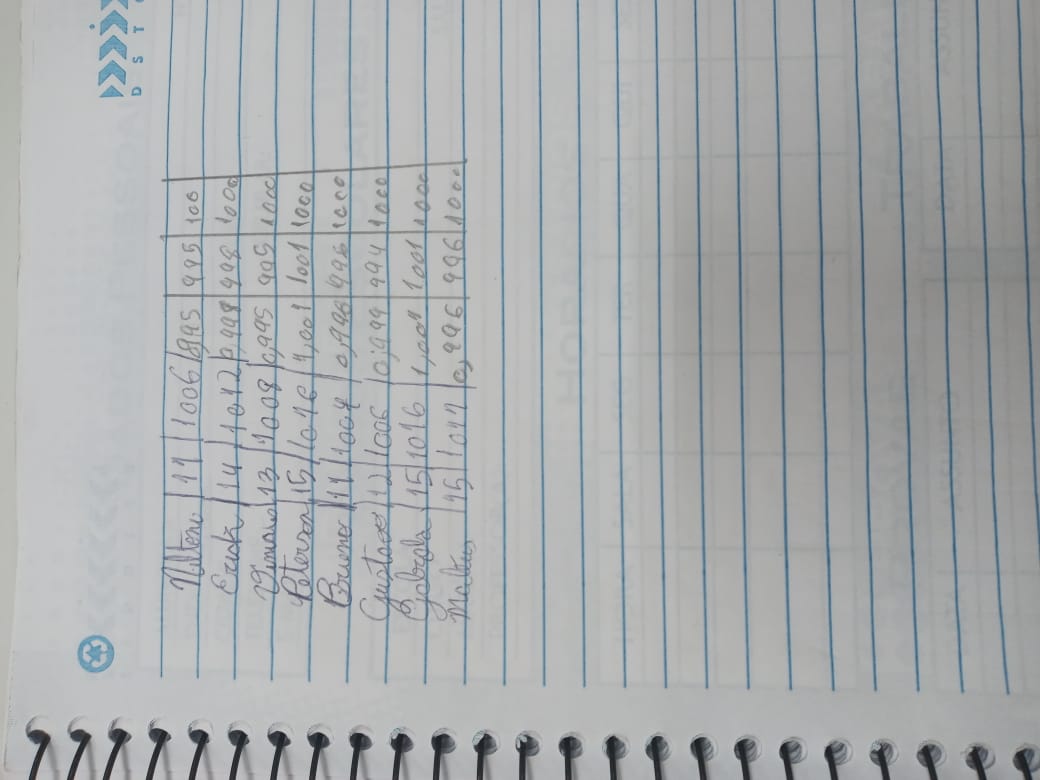 Niltone | 11 | 1006 | 0,995 | 995 | 100
Erick | 14 | 1012 | 0,998 | 998 | 1000
13 | 1008 | 0,995 | 995 | 1000
Peterson | 15 | 1016 | 1,001 | 1001 | 1000
Bruno | 11 | 1007 | 0,996 | 996 | 1000
Gustavo | 12 | 1006 | 0,994 | 994 | 1000
Gabriela | 15 | 1016 | 1,001 | 1001 | 1000
15 | 1011 | 0,996 | 996 | 1000
D S T